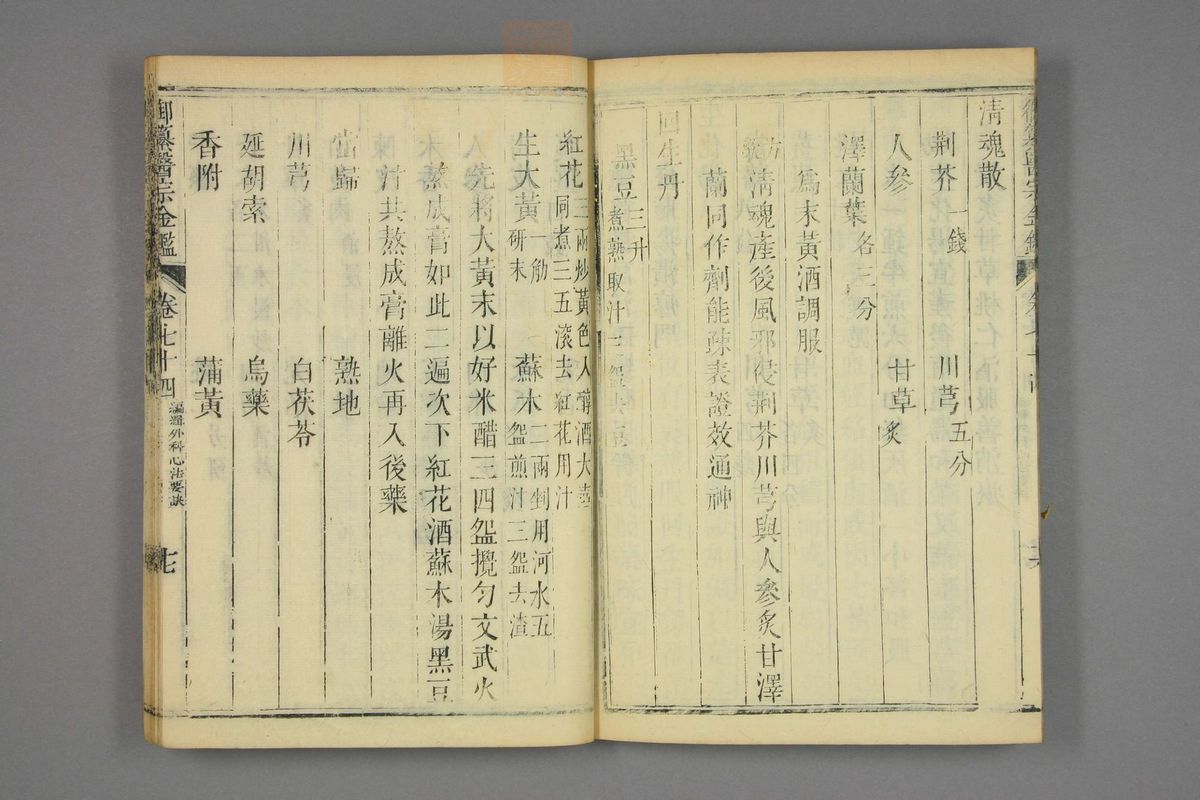 清魂散
荆芥一錢 川芎五分
人參 甘草炙
澤蘭葉各三分
爲末黃酒調服
方歌 清魂產後風邪侵荆芥川芎與人參炙甘澤
蘭同作劑能疎表證效通神
回生丹
黑豆三升煮熟取汁三盌
紅花三兩炒黃色入醇酒大壺同煮三五滚去紅花用汁
生大黃一觔研末 蘇木二兩剉用河水五盌煎汁三盌去渣
先將大黃末以好米醋三四盌攪勻文武火
熬成膏如此二遍次下紅花酒蘇木湯黑豆
汁共熬成膏離火再入後藥
當歸 熟地
川芎 白茯苓
延胡索 烏藥
香附 蒲黃
御纂醫宗金鑑 卷七十四 編輯外科心法要訣 七